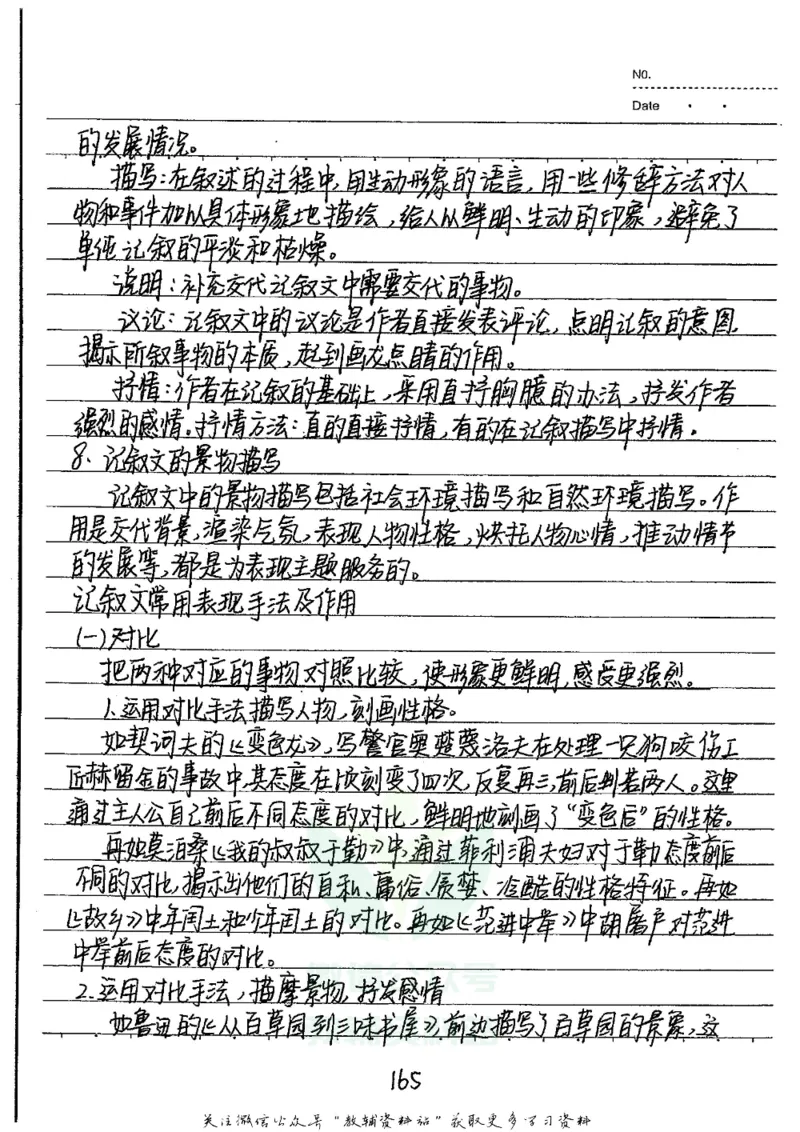 No.
Date
的发展情况。
描写：在叙述的过程中，用生动形象的语言，用一些修辞方法对人
物和事件加以具体形象地描绘，给人以鲜明、生动的印象，避免了
单纯记叙的平淡和枯燥。
说明：补充交代记叙文中需要交代的事物。
议论：记叙文中的议论是作者直接发表评论，点明记叙的意图，
揭示所叙事物的本质，起到画龙点睛的作用。
抒情：作者在记叙的基础上，采用直抒胸臆的办法，抒发作者
强烈的感情。抒情方法：直的直接抒情，有的在记叙描写中抒情。
8、记叙文的景物描写
记叙文中的景物描写包括社会环境描写和自然环境描写。作
用是交代背景，渲染气氛，表现人物性格，烘托人物心情，推动情节
的发展等，都是为表现主题服务的。
记叙文常用表现手法及作用
(一)对比
把两种对应的事物对照比较，使形象更鲜明，感受更强烈。
1、运用对比手法描写人物，刻画性格。
如契诃夫的《变色龙》，写警官奥楚蔑洛夫在处理一只狗咬伤工
匠赫留金的事故中，其态度在顷刻变了四次，反复再三，前后判若两人。这里
通过主人公自己前后不同态度的对比，鲜明地刻画了“变色后”的性格。
再如莫泊桑《我的叔叔于勒》中，通过菲利浦夫妇对于勒态度前后
不同的对比，揭示出他们的自私、庸俗、贪婪、冷酷的性格特征。再如
《故乡》中年闰土和少年闰土的对比。再如《范进中举》中胡屠户对范进
中举前后态度的对比。
2、运用对比手法，描摩景物，抒发感情
如鲁迅的《从百草园到三味书屋》，前边描写了百草园的景象，这
165
关注微信公众号“教辅资料站”获取更多学习资料